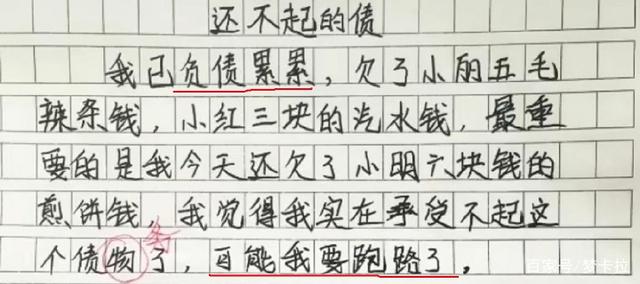 还不起的债
我已负债累累，欠了小丽五毛
辣条钱，小红三块的汽水钱，最重
要的是我今天还欠了小明六块钱的
煎饼钱，我觉得我实在承受不起这
务
个债物了，可能我要跑路了，
百家号/梦卡拉